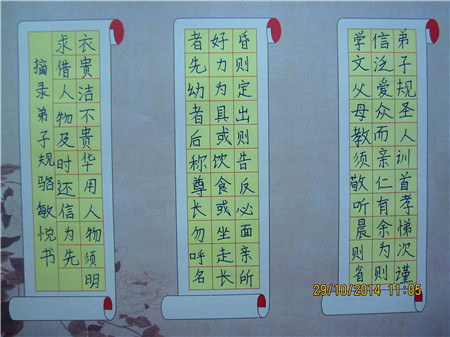 弟子规圣人训首孝悌次谨
信泛爱众而亲仁有余为则
学文父母教须敬听晨则省
昏则定出则告反必面亲所
好力为具或饮食或坐走长
者先幼者后称尊长勿呼名
衣贵洁不贵华用人物须明
求借人物及时还信为先
摘录弟子规骆敏悦书
29/10/2014 11:05